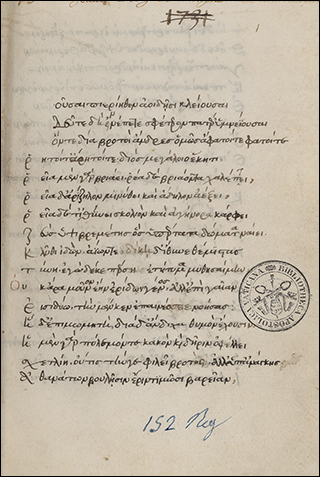 1731
ουσαι πιερίηθεν ἀοιδῇσι κλείουσαι
Δεῦτε δὴ ἐννέπετε σφέτερον πατέρ' ὑμνείουσαι
ὅντε διὰ βροτοὶ ἄνδρες ὁμῶς ἄφατοί τε φατοί τε
ῥητοί τ' ἄρρητοί τε διὸς μεγάλοιο ἕκητι
ῥεῖα μὲν γὰρ βριάει ῥέα δὲ βριάοντα χαλέπτει,
ῥεῖα δ' ἀρίζηλον μινύθει καὶ ἄδηλον ἀέξει,
ῥεῖα δέ τ' ἰθύνει σκολιὸν καὶ ἀγήνορα κάρφει
Ζεὺς ὑψιβρεμέτης ὃς ὑπέρτατα δώματα ναίει
Κλῦθι ἰδὼν ἀΐων τε δίκῃ δ' ἴθυνε θέμιστας
τύνη ἐγὼ δέ κε πέρσῃ ἐτήτυμα μυθησαίμην
Οὐκ ἄρα μοῦνον ἔην ἐρίδων γένος ἀλλ' ἐπὶ γαῖαν
Εἰσὶ δύω τὴν μέν κεν ἐπαινέσειε νοήσας
Ἡ δ' ἐπιμωμητή διὰ δ' ἄνδιχα θυμὸν ἔχουσιν
Ἡ μὲν γὰρ πόλεμόν τε κακὸν καὶ δῆριν ὀφέλλει
σχετλίη οὔτις τήνγε φιλεῖ βροτὸς ἀλλ' ὑπ' ἀνάγκης
Ἀθανάτων βουλῇσιν ἔριν τιμῶσι βαρεῖαν,
BIBLIOTHECA APOSTOLICA VATICANA
152 Reg